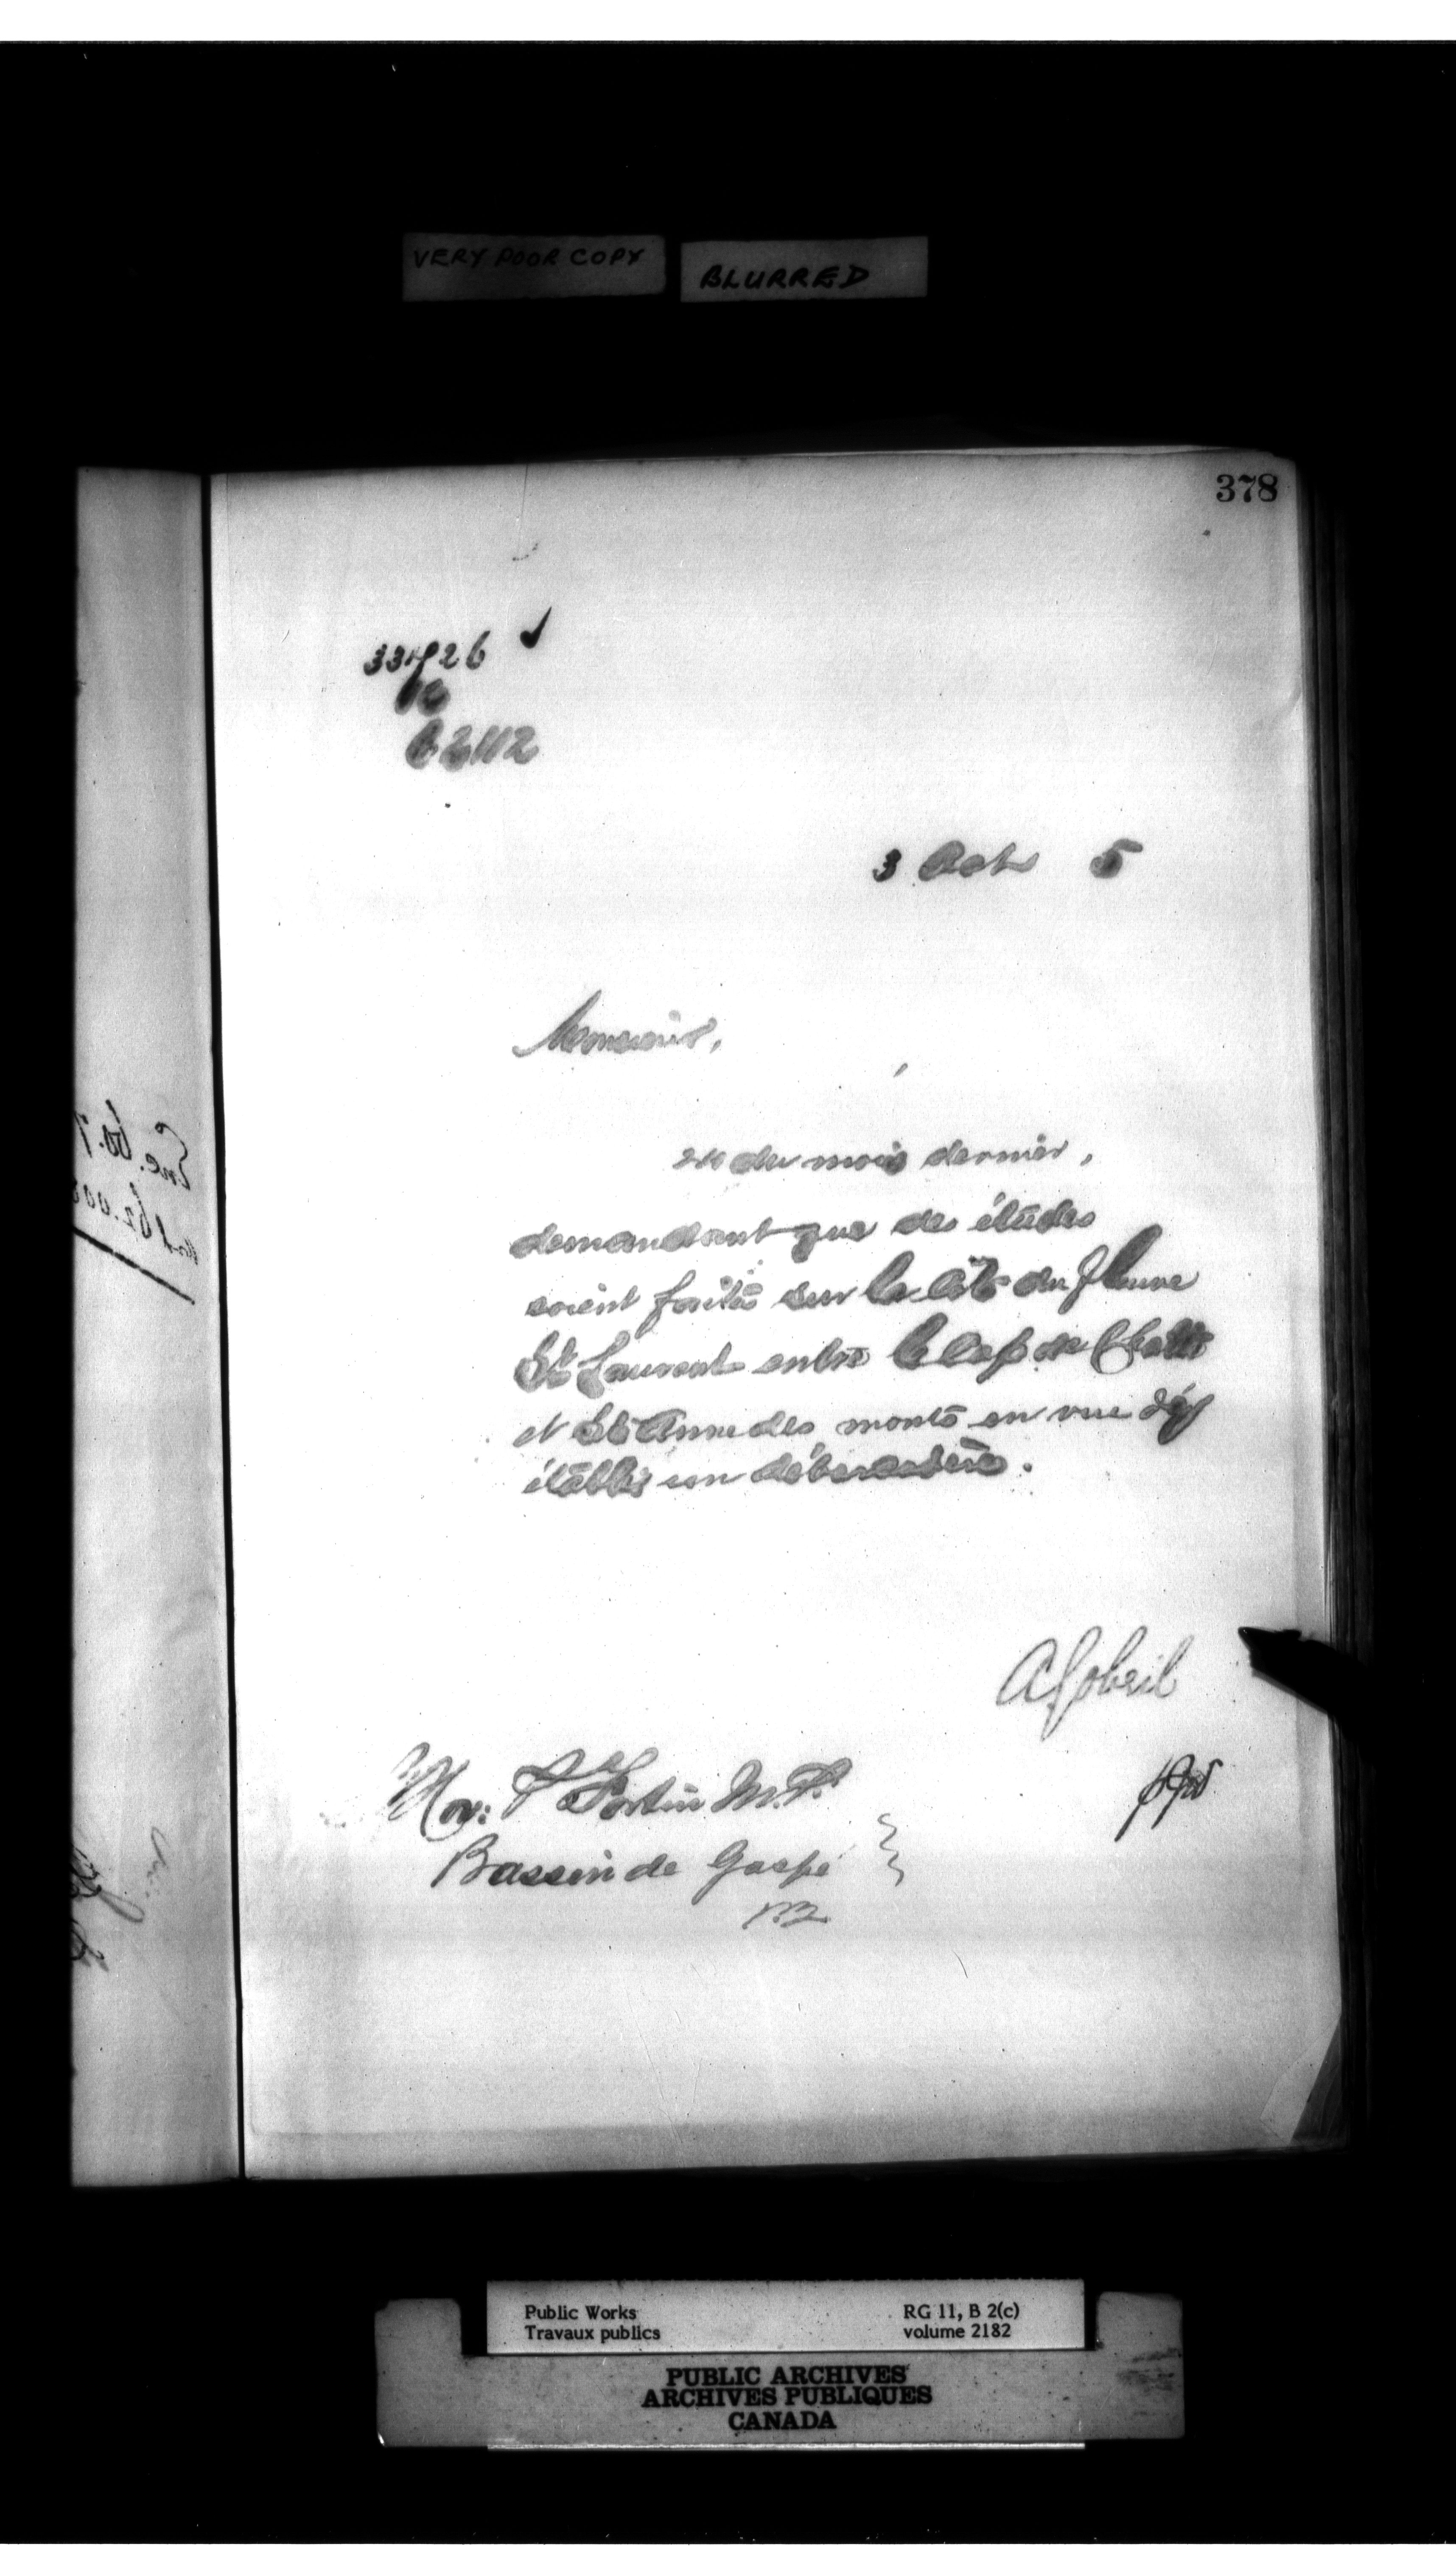 VERY POOR COPY
BLURRED
378
62112
3 Oct 5
Monsieur,
du mois dernier,
demandant que des études
soient faites sur la côte du fleuve
St Laurent entre le Cap de Chatte
et St Anne des monts en vue d'y
établir un débarcadère.
A Gobeil
Hon: P Fortin M.P.
Bassin de Gaspé
Public Works
Travaux publics
RG 11, B 2(c)
volume 2182
PUBLIC ARCHIVES
ARCHIVES PUBLIQUES
CANADA